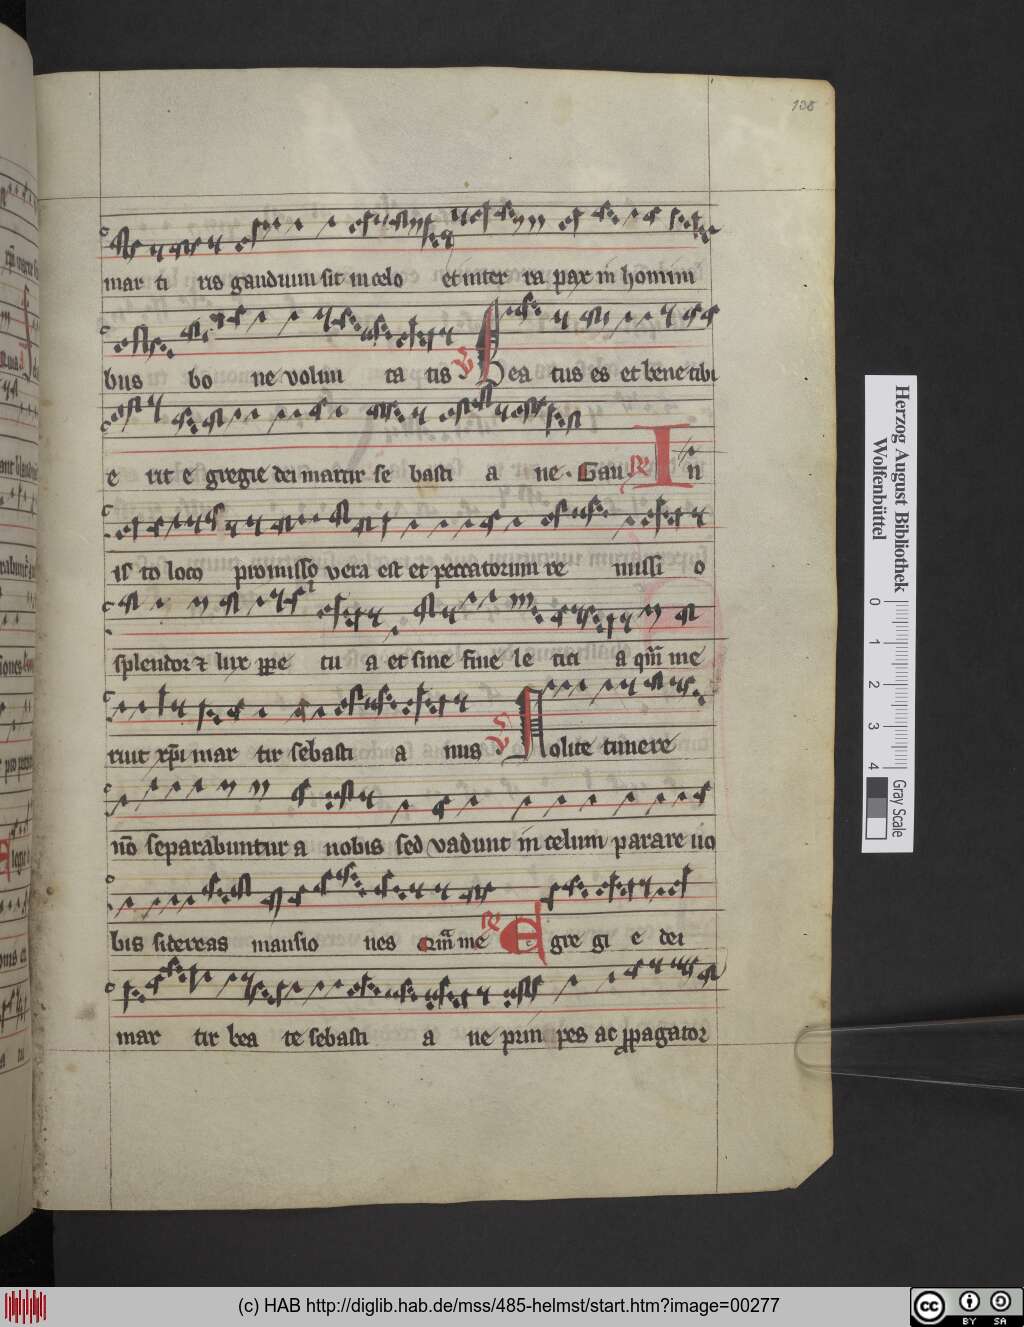 138
mar ti ris gaudium sit in celo et in ter ra pax in homini
bus bo ne volun ta tis V Bea tus es et bene tibi
e rit e gregie dei martir se basti a ne . Gau R I n
is to loco promisso vera est et peccatorum re missi o
splendor ⁊ lux ꝑpe tu a et sine fine le tici a qm̄ me
ruit xp̄i mar tir sebasti a nus V Nolite timere
nō separabuntur a nobis sed vadunt in celum parare uo
bis sidereas mansio nes Qm̄ me R Egre gi e dei
mar tir bea te sebasti a ne prin pes ac ꝓpagator
Herzog August Bibliothek
Wolfenbüttel
0 1 2 3 4 Gray Scale
(c) HAB http://diglib.hab.de/mss/485-helmst/start.htm?image=00277
cc BY SA